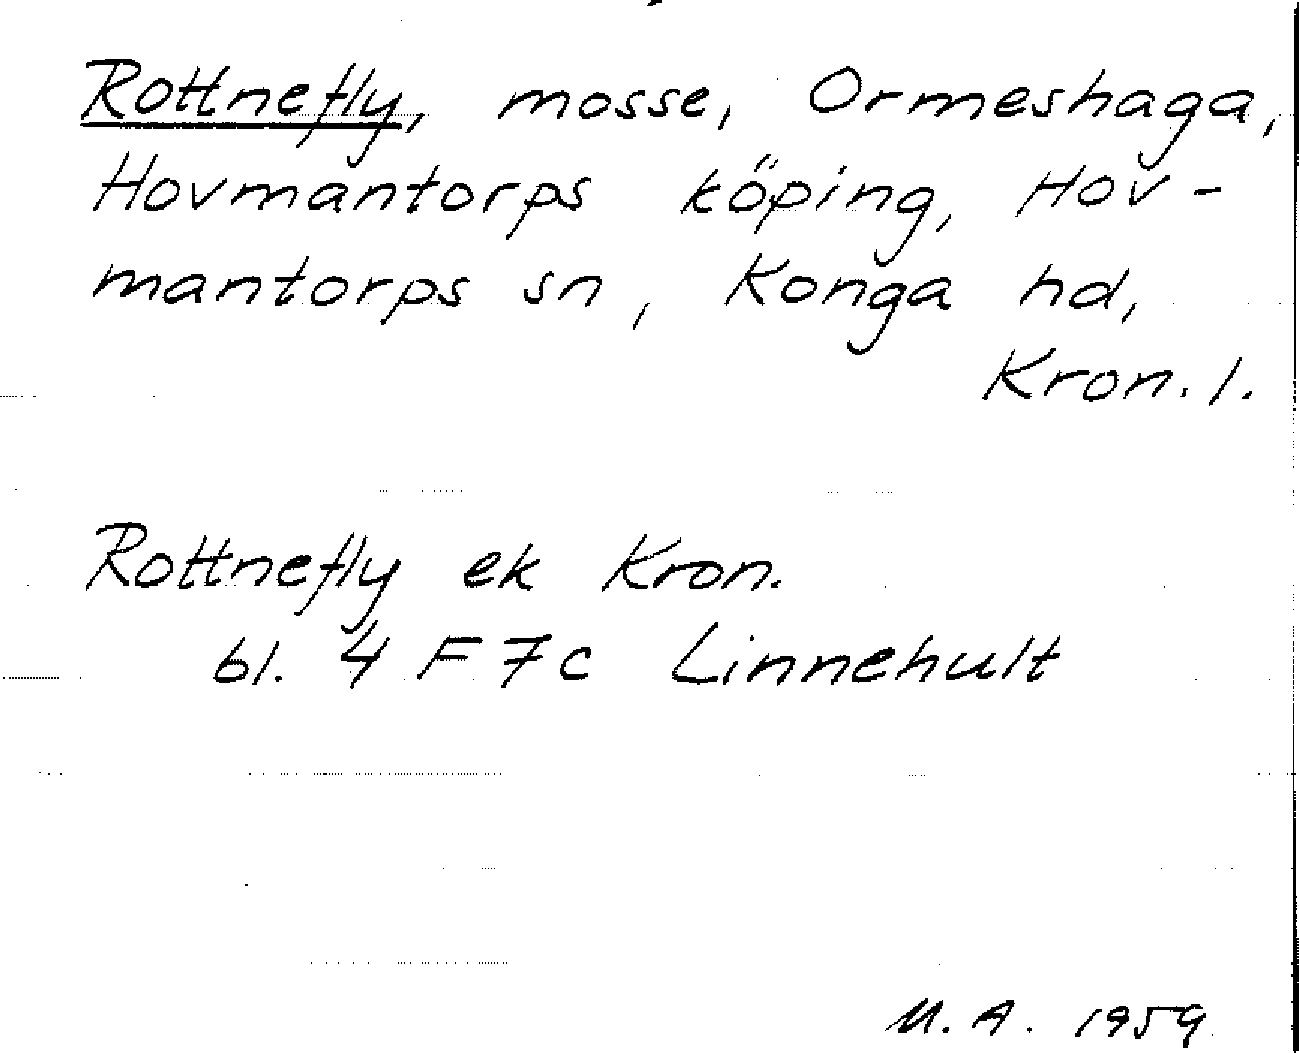 Rottnefly, mosse, Ormeshaga,
Hovmantorps köping, Hov-
mantorps sn, Konga hd,
Kron. l.
Rottnefly ek Kron.
bl. 4 F 7c Linnehult
M. A. 1959